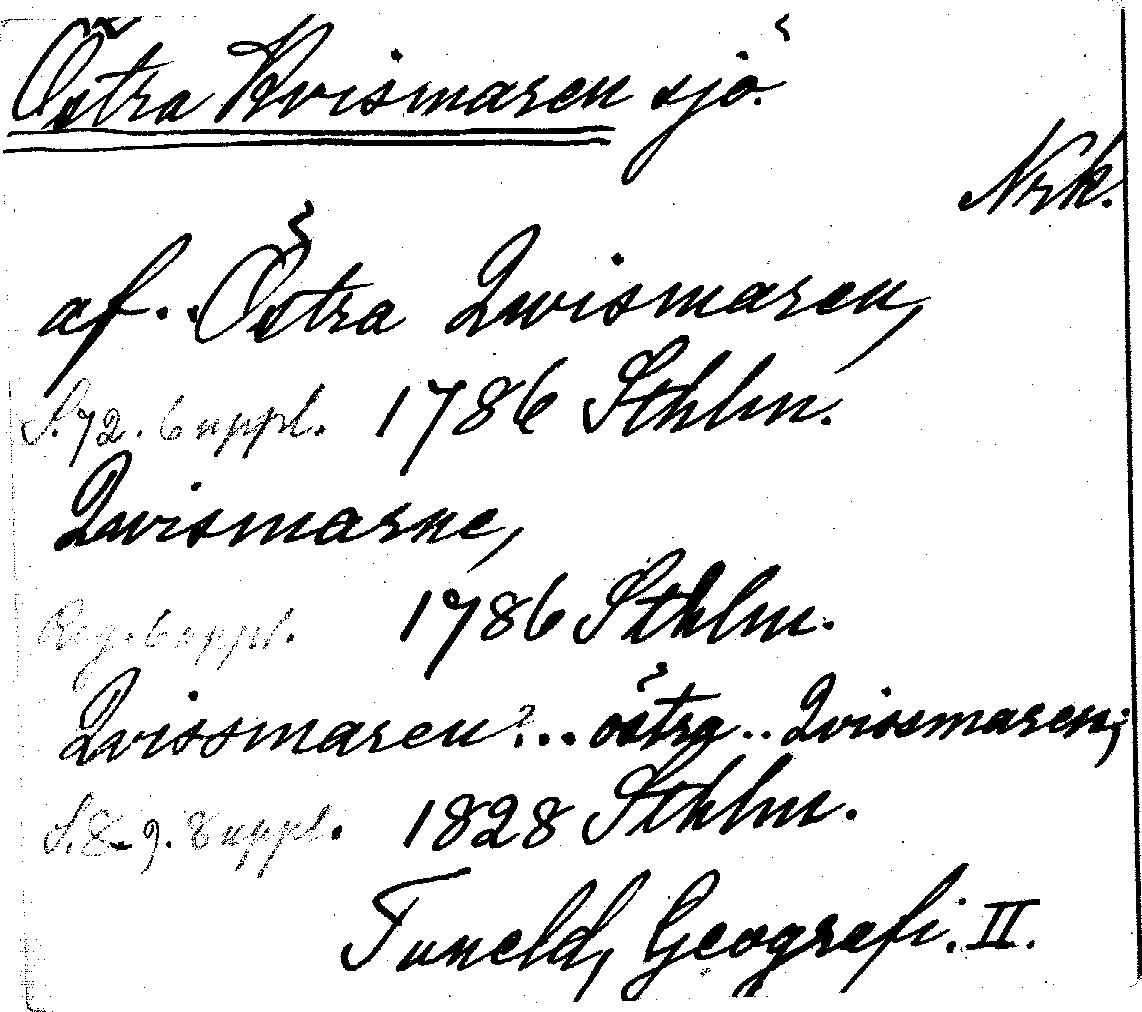 Östra Kvismaren sjö.
Nrk.
af.. Östra Qvismaren,
S. 72. 6 uppl. 1786 Sthlm.
Qvismarne,
Reg. 6 uppl. 1786 Sthlm.
Qvissmaren?... östra.. Qvissmaren;
S. 8-9. 8 uppl. 1828 Sthlm.
Tuneld, Geografi. II.